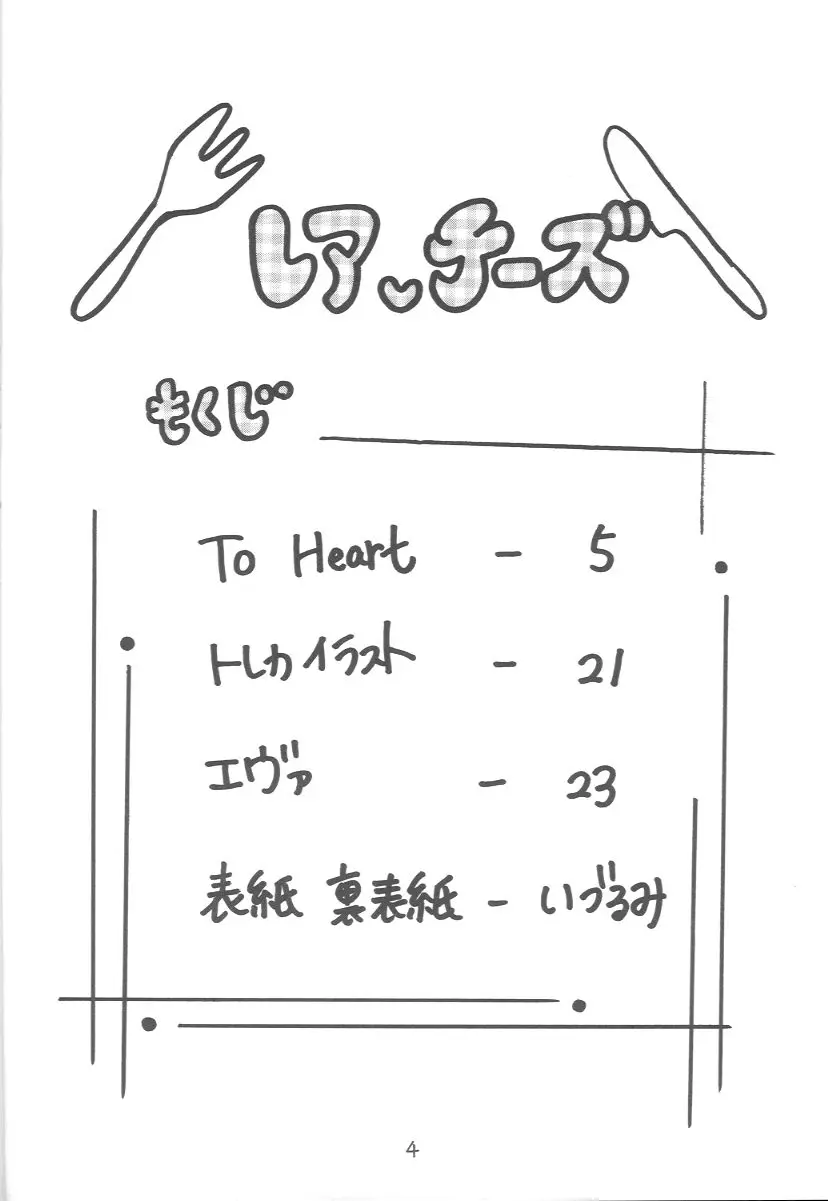 レア チーズ
もくじ
To Heart - 5
トレカイラスト - 21
エヴァ - 23
表紙 裏表紙 - いづるみ
4